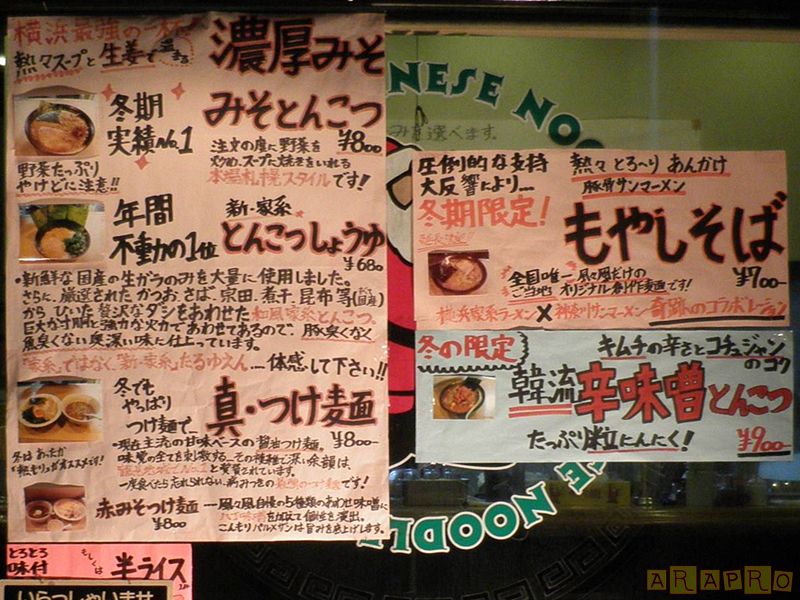 横浜最強の一杯!
熱々スープと生姜で温まる
濃厚みそ
みそとんこつ
¥800
冬期
実績No.1
注文の度に野菜を
炒め、スープに焼きをいれる
本場札幌スタイルです!
野菜たっぷり
やけどに注意!!
年間
不動の1位
新・家系
とんこつしょうゆ
¥680
・新鮮な国産の生ガラのみを大量に使用しました。
さらに、厳選されたかつお、さば、宗田、煮干、昆布等
からひいた贅沢なダシをあわせた和風家系とんこつ。
巨大かす胴と強力な火力であわせてあるので、豚臭くなく
魚臭くない奥深い味に仕上っています。
「家系」ではなく、「新・家系」たるゆえん....体感して下さい!!
冬でも
やっぱり
つけ麺で
真・つけ麺
¥800
・現在主流の甘味ベースの醤油つけ麺。
味覚の全てを刺激する、その複雑で深い余韻は、
と賞賛されています。
一度食べたら忘れられない、病みつきの
つけ麺です!
冬はあったか
「熱もり」がオススメです!
赤みそつけ麺
¥800
風々風自慢の5種類のあわせ味噌に
を加えて個性を演出。
こんもりパルメザンは旨みを底上げします。
とろとろ
味付
もしくは
半ライス
いらっしゃいませ
NESE NOO
み 選べます。
圧倒的な支持
大反響により...
冬期限定!
熱々とろ〜りあんかけ
豚骨サンマーメン
もやしそば
¥700
全国唯一 風々風だけの
ご当地オリジナル創作麺です!
横浜家系ラーメン×神奈川サンマーメン 奇跡のコラボレーション
冬の限定
キムチの辛さとコチュジャン
のコク
韓流辛味噌とんこつ
たっぷり粒にんにく!
¥900
E NOODLE
ARAPRO